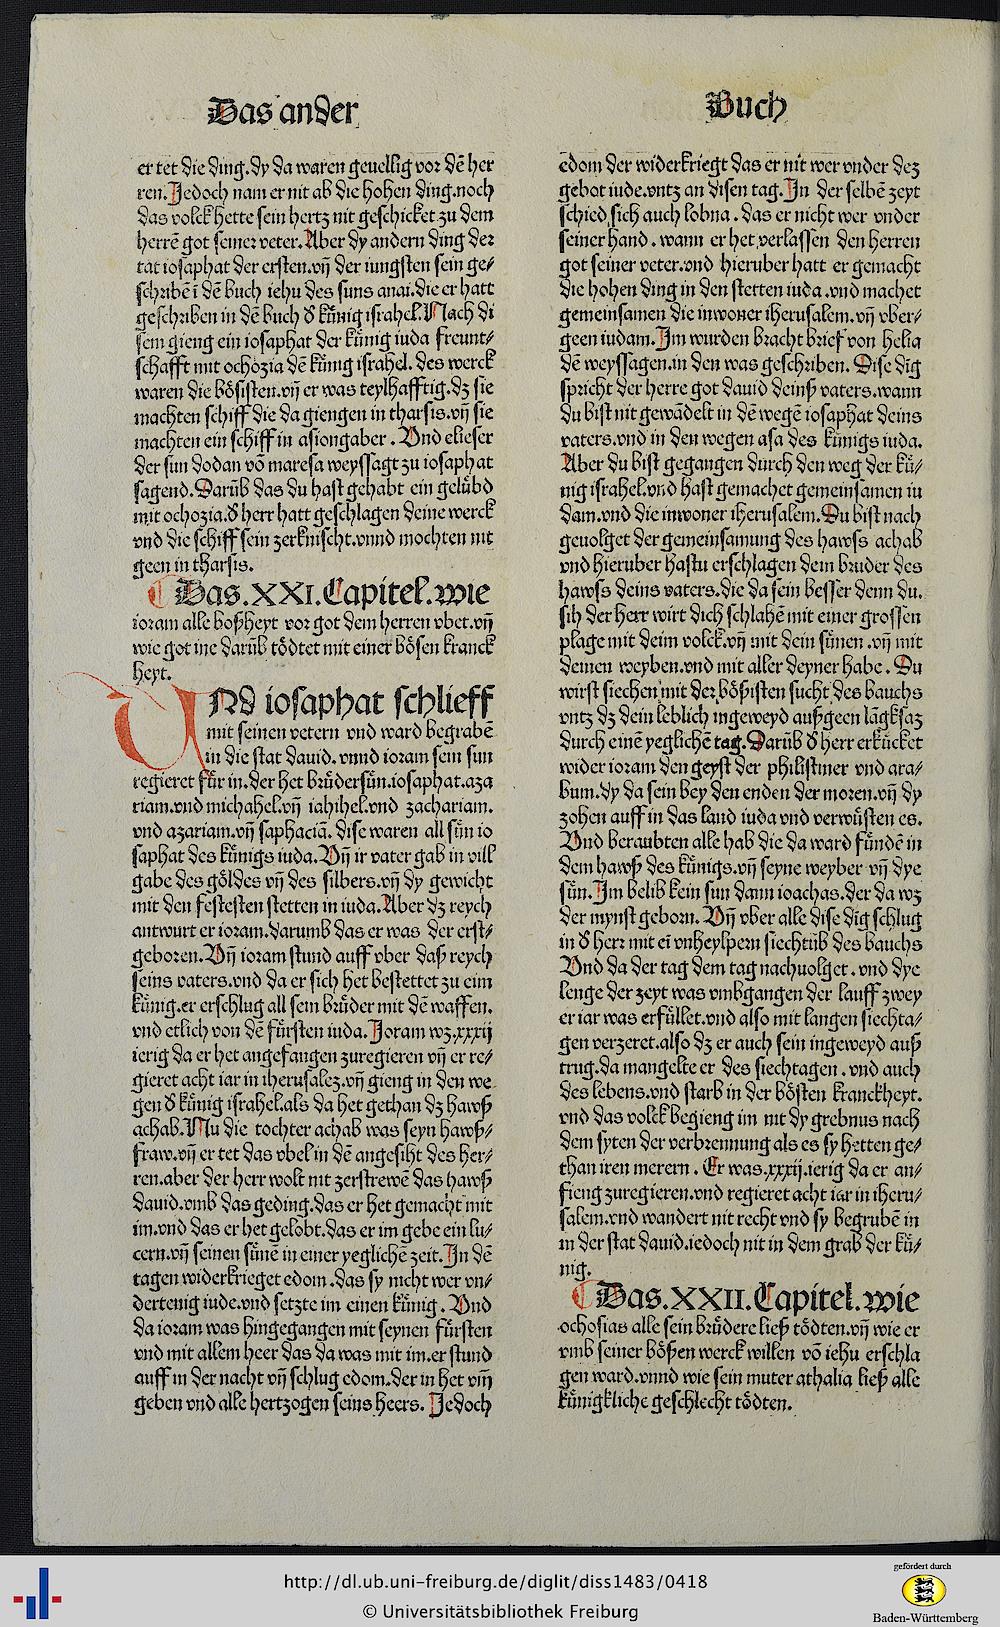 Das ander
Buch
er tet die ding.dy da waren geuellig vor dē her
ren.Jedoch nam er nit ab die hohen ding.noch
das volck hette sein hertz nit geschicket zu dem
herrē got seiner veter.Aber dy andern ding der
tat iosaphat der ersten.vñ der iungsten sein ge/
schribē ī dē buch iehu des suns anai.die er hatt
geschriben in dē buch d̕ künig israhel.Nach di
sem gieng ein iosaphat der künig iuda freunt/
schafft mit ochozia dē künig israhel. des werck
waren die bösisten.vñ er was teylhafftig.dz sie
machten schiff die da giengen in tharsis.vñ sie
machten ein schiff in asiongaber. Vnd elieser
der sun dodan vō maresa weyssagt zu iosaphat
sagend.Darūb das du hast gehabt ein gelübd
mit ochozia.d̕ herr hatt geschlagen deine werck
vnd die schiff sein zerknischt.vnnd mochten nit
geen in tharsis.
Das.XXI.Capitel.wie
ioram alle boßheyt vor got dem herren vbet.vñ
wie got ine darūb tödtet mit einer bösen kranck
heyt.
VNd iosaphat schlieff
mit seinen vetern vnd ward begrabē
in die stat dauid. vnnd ioram sein sun
regieret für in.der het brüdersün.iosaphat.aza
riam.vnd michahel.vñ iahihel.vnd zachariam.
vnd azariam.vñ saphaciā. dise waren all sün io
saphat des künigs iuda.Vñ ir vater gab in vill
gabe des goldes vñ des silbers.vñ dy gewicht
mit den festesten stetten in iuda.Aber dz reych
antwurt er ioram.darumb das er was der erst/
geboren.Vñ ioram stund auff vber daß reych
seins vaters.vnd da er sich het bestettet zu eim
künig.er erschlug all sein brüder mit dē waffen.
vnd etlich von dē fürsten iuda.Joram wz.xxxij
ierig da er het angefangen zuregieren vñ er re/
gieret acht iar in iherusalez.vñ gieng in den we
gen d̕ künig israhel.als da het gethan dz hawß
achab.Nu die tochter achab was seyn hawß/
fraw.vñ er tet das vbel in dē angesiht des her/
ren.aber der herr wolt nit zerstrewē das hawß
dauid.vmb das geding.das er het gemacht mit
im.vnd das er het gelobt.das er im gebe ein lu/
cern.vñ seinen sünē in einer yeglichē zeit.In dē
tagen widerkrieget edom.das sy nicht wer vn/
dertenig iude.vnd setzte im einen künig. Vnd
da ioram was hingegangen mit seynen fürsten
vnd mit allem heer das da was mit im.er stund
auff in der nacht vñ schlug edom.der in het vm̄
geben vnd alle hertzogen seins heers. Jedoch
edom der widerkriegt das er nit wer vnder dez
gebot iude.vntz an disen tag.In der selbē zeyt
schied sich auch lobna. das er nicht wer vnder
seiner hand. wann er het verlassen den herren
got seiner veter.vnd hieruber hatt er gemacht
die hohen ding in den stetten iuda.vnd machet
gemeinsamen die inwoner iherusalem.vñ vber/
geen iudam.Im wurden bracht brief von helia
dē weyssagen.in den was geschriben. Dise dīg
spricht der herre got dauid deinß vaters.wann
du bist nit gewādelt in dē wegē iosaphat deins
vaters.vnd in den wegen asa des künigs iuda.
Aber du bist gegangen durch den weg der kü/
nig israhel.vnd hast gemachet gemeinsamen iu
dam.vnd die inwoner iherusalem.Du bist nach
geuolget der gemeinsamung des hawss achab
vnd hieruber hastu erschlagen dein bruder des
hawss deins vaters.die da sein besser denn du.
sih der herr wirt dich schlahē mit einer grossen
plage mit deim volck.vñ mit dein sünen.vñ mit
deinen weyben.vnd mit aller deyner habe. Du
wirst siechen mit der bößisten sucht des bauchs
vntz dz dein leblich ingeweyd außgeen lāgksaz
durch einē yeglichē tag.Darūb d̕ herr erkücket
wider ioram den geyst der philistiner vnd ara/
bum.dy da sein bey den enden der moren.vñ dy
zohen auff in das land iuda vnd verwüsten es.
Vnd beraubten alle hab die da ward fündē in
dem hawß des künigs.vñ seyne weyber vñ dye
sün.Im belib kein sun dann ioachas.der da wz
der mynst geborn. Vñ vber alle dise dīg schlug
in d̕ herr mit eī vnheylpern siechtūb des bauchs
Vnd da der tag dem tag nachuolget. vnd dye
lenge der zeyt was vmbgangen der lauff zwey
er iar was erfüllet.vnd also mit langen siechta/
gen verzeret.also dz er auch sein ingeweyd auß
trug.da mangelte er des siechtagen. vnd auch
des lebens.vnd starb in der bösten kranckheyt.
vnd das volck begieng im nit dy grebnus nach
dem syten der verbrennung als es sy hetten ge/
than iren merern. Er was.xxxij.ierig da er an/
fieng zuregieren.vnd regieret acht iar in iheru/
salem.vnd wandert nit recht vnd sy begrubē in
in der stat dauid.iedoch nit in dem grab der kü/
nig.
Das.XXII.Capitel.wie
ochosias alle sein brüdere ließ tödten.vñ wie er
vmb seiner bößen werck willen vō iehu erschla
gen ward.vnnd wie sein muter athalia ließ alle
künigkliche geschlecht tödten.
http://dl.ub.uni-freiburg.de/diglit/diss1483/0418
© Universitätsbibliothek Freiburg
gefördert durch
Baden-Württemberg